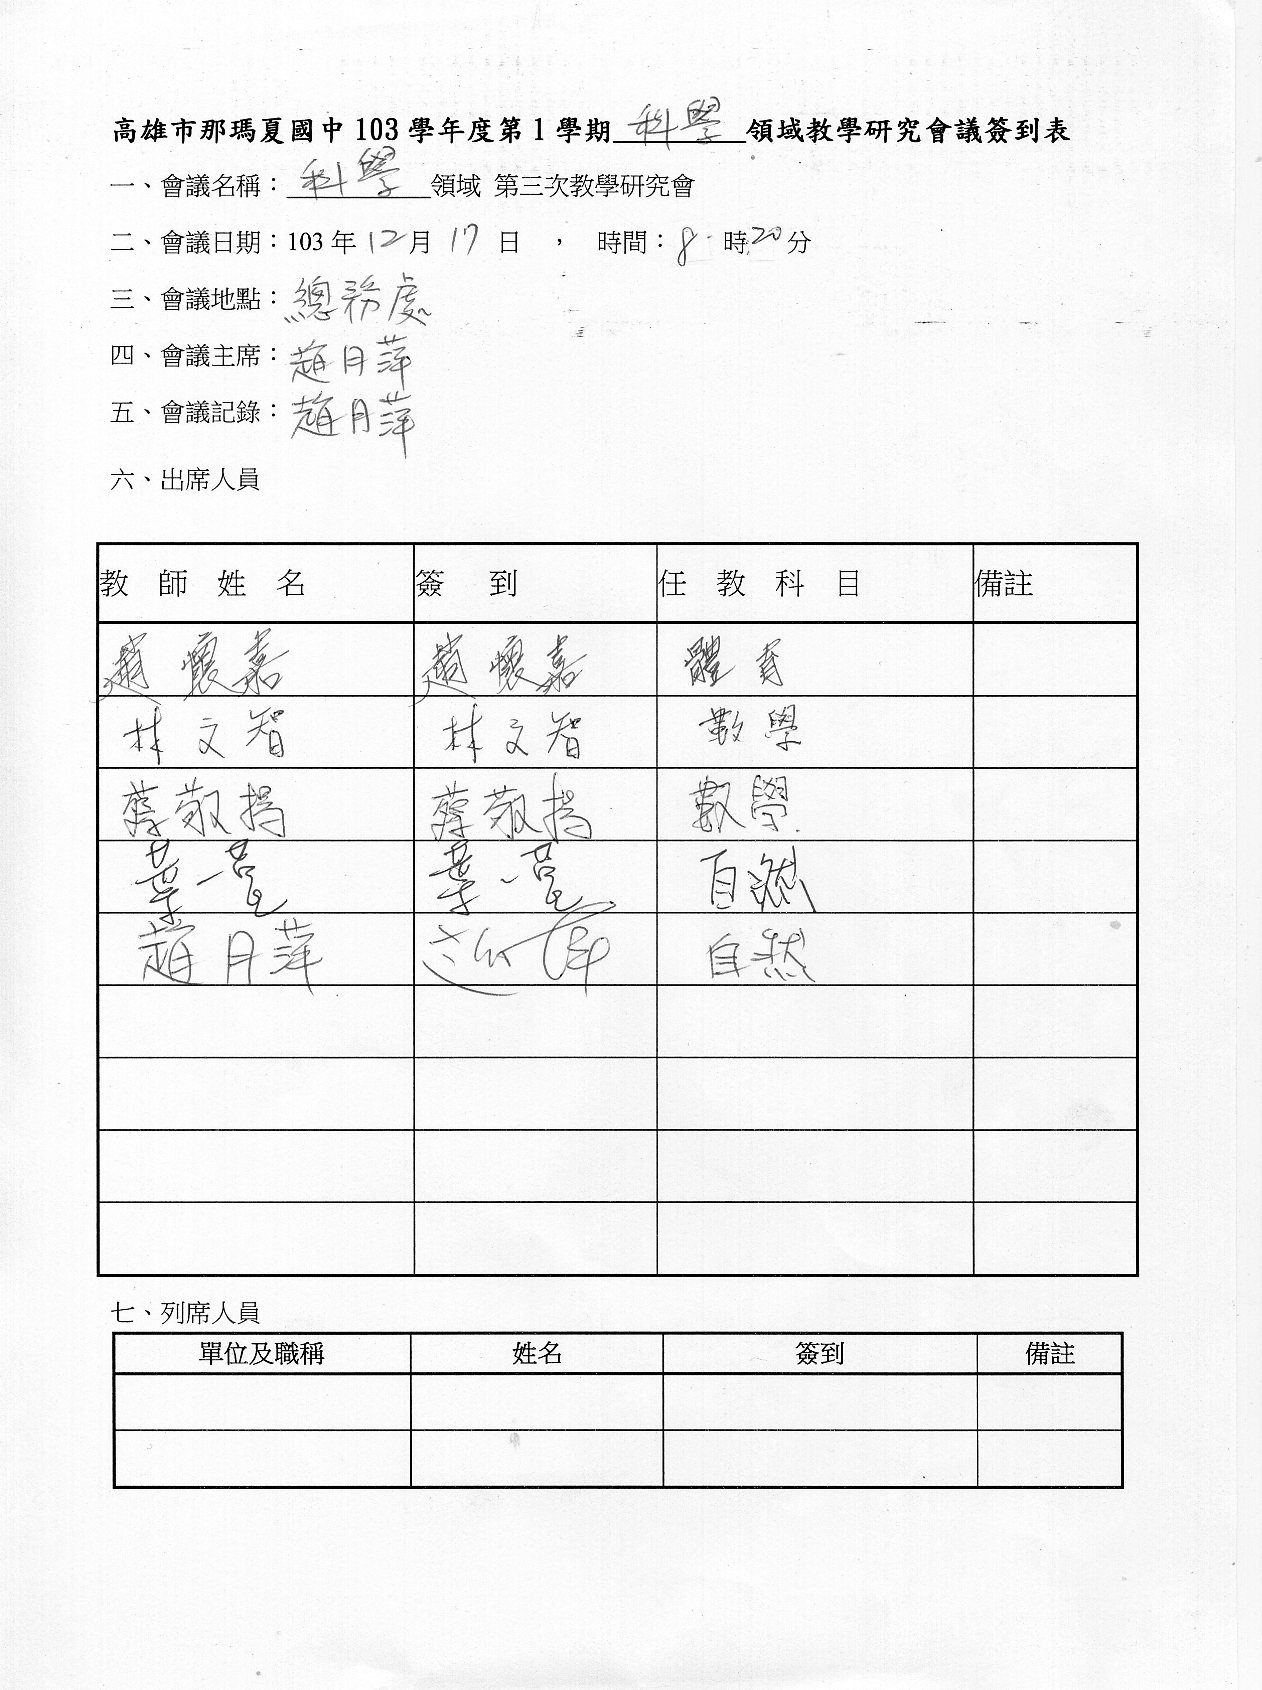 高雄市那瑪夏國中 103 學年度第 1 學期 科學 領域教學研究會議簽到表
一、會議名稱：科學 領域 第三次教學研究會
二、會議日期：103 年 12 月 17 日 ， 時間：8 時 20 分
三、會議地點：總務處
四、會議主席：趙月萍
五、會議記錄：趙月萍
六、出席人員
教 師 姓 名 簽 到 任 教 科 目 備註
趙懷嘉 趙懷嘉 體育
林文智 林文智 數學
蔡敬揚 蔡敬揚 數學
葉一 葉一 自然
趙月萍 自然
七、列席人員
單位及職稱 姓名 簽到 備註